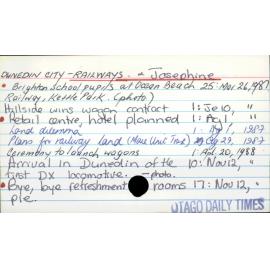 DUNEDIN CITY - RAILWAYS. - Josephine
• Brighton School pupils at Ocean Beach 25: Mar 26, 1987
Railway, Kettle Park. (photo)
Hillside wins wagon contract 1: Je 10, "
• Retail centre, hotel planned 1: Ag 1, "
Land dilemma 1: Ag 1, 1987
Plans for railway land 29, 1987
Ceremony to launch wagons 1: Ap 20, 1988
Arrival in Dunedin of the 10: Nov 12, "
first DX locomotive. - photo.
• Bye, bye refreshment rooms 17: Nov 12, "
pie.
OTAGO DAILY TIMES